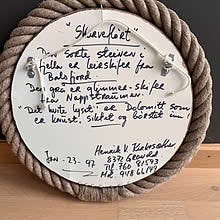 "Skjærefløst"
Den sorte skiven i
fjella er leirskifer fra
Balsfjord.
Den grå er glimmer-skifer
fra Nappstraumen.
"Det hvite lyset" er Dolomitt som
er knust, siktet og børstet inn.
Henrik V. Kaboræker
Jan. 23. 97 8371 Gravdal
Tlf 760 91573
Mob. 948 66149